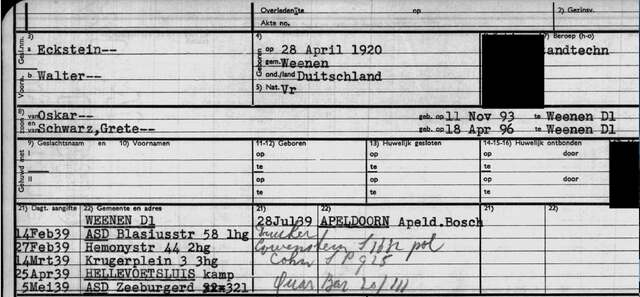 Overleden/te op
Akte no.
2) Gezinsv.
3) 4) 7) Beroep (h-o)
Gesl.nm. a Eckstein-- Geboren op 28 April 1920 andtechn
gem. Weenen
Voorn. b Walter-- ond./land Duitschland
5) Nat. Vr
van Oskar-- geb. op 11 Nov 93 te Weenen Dl
en van Schwarz,Grete-- geb. op 18 Apr 96 te Weenen Dl
9) Geslachtsnaam en 10) Voornamen 11-12) Geboren 13) Huwelijk gesloten 14-15-16) Huwelijk ontbonden
Gehuwd met I op op op door
te te te
II op op op door
te te te
21) Dagt. aangifte 22) Gemeente en adres 21) 22) Gemeente en adres
WEENEN Dl 28Jul39 APELDOORN Apeld.Bosch
14Feb39 ASD Blasiusstr 58 1hg
27Feb39 Hemonystr 44 2hg pol
14Mrt39 Krugerplein 3 3hg Cohn
25Apr39 HELLEVOETSLUIS kamp
5Mei39 ASD Zeeburgerd 321 Quar Bar